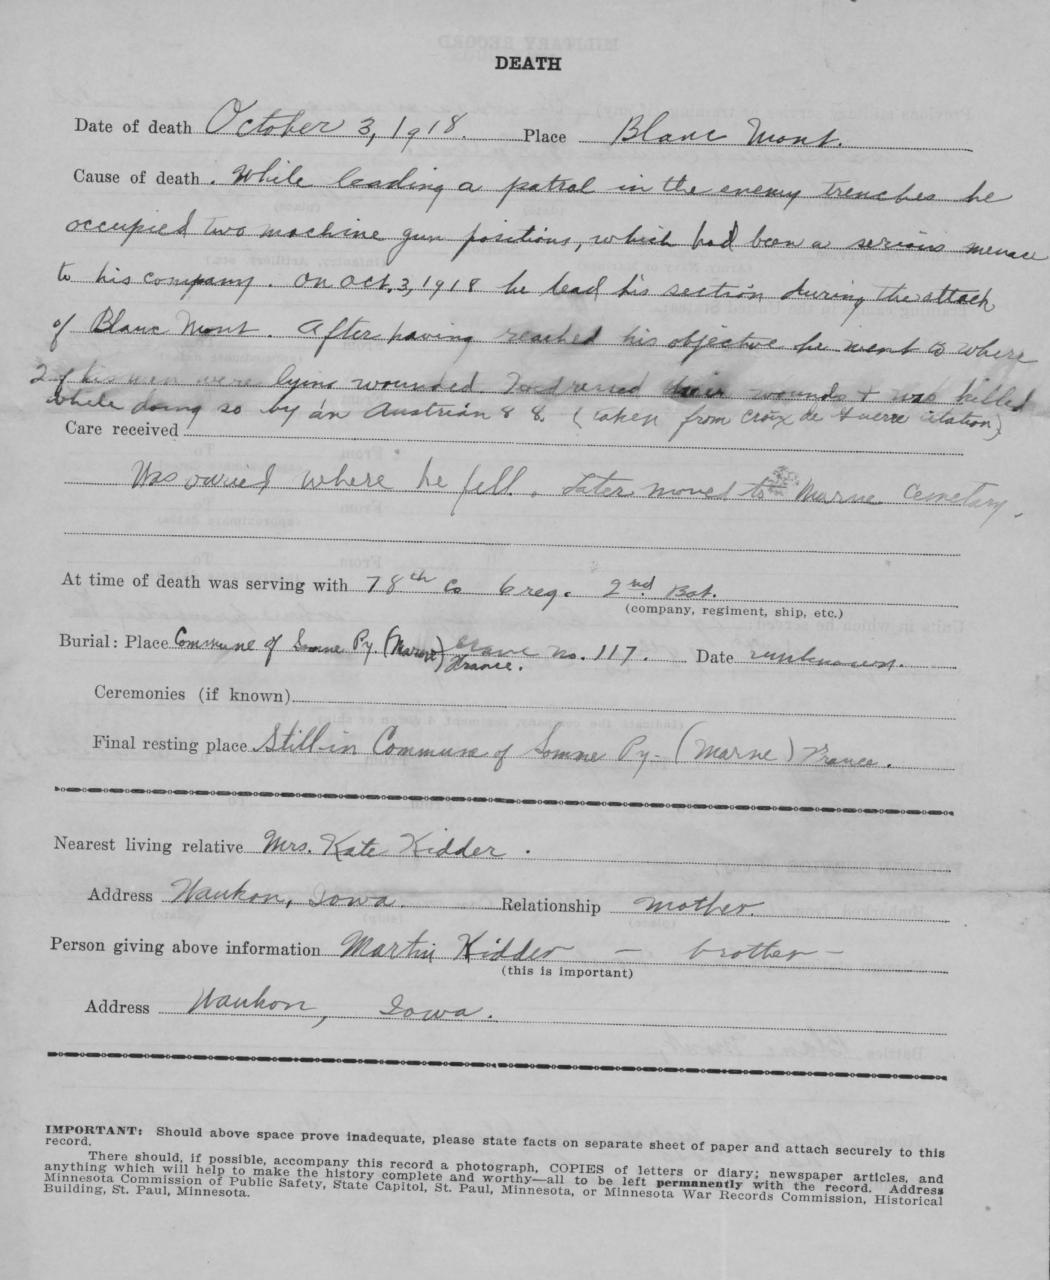 DEATH
Date of death October 3, 1918. Place Blanc Mont.
Cause of death. While leading a patrol in the enemy trenches he
occupied two machine gun positions, which had been a serious menace
to his company. On Oct. 3, 1918 he lead his section during the attack
of Blanc Mont. After having reached his objective he went to where
2 of his men were lying wounded. dressed their wounds & was killed
while doing so by an Austrian 88. (taken from Croix de Guerre citation)
Care received
Was buried where he fell. Later moved to Marne Cemetary.
At time of death was serving with 78th Co 6 reg. 2nd Bat.
(company, regiment, ship, etc.)
Burial: Place Commune of Somme Py (Marne) France. Grave no. 117. Date unknown.
Ceremonies (if known)
Final resting place Still in Commune of Somme Py - (Marne) France.
Nearest living relative Mrs. Kate Kidder.
Address Waukon, Iowa. Relationship mother.
Person giving above information Martin Kidder - brother -
(this is important)
Address Waukon, Iowa.
IMPORTANT: Should above space prove inadequate, please state facts on separate sheet of paper and attach securely to this
record.
There should, if possible, accompany this record a photograph, COPIES of letters or diary; newspaper articles, and
anything which will help to make the history complete and worthy—all to be left permanently with the record. Address
Minnesota Commission of Public Safety, State Capitol, St. Paul, Minnesota, or Minnesota War Records Commission, Historical
Building, St. Paul, Minnesota.